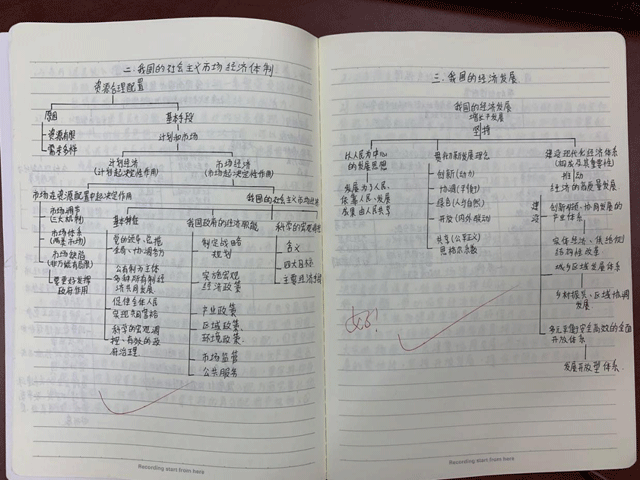 二、我国的社会主义市场经济体制
资源合理配置
原因
基本手段
资源有限
需求多样
计划和市场
计划经济
(计划起决定性作用)
市场经济
(市场起决定性作用)
市场在资源配置中起决定作用
市场调节
(三大机制)
市场体系
市场缺陷
要更好发挥
政府作用
我国的社会主义市场经济
基本特征
党的领导、总揽
全局、协调各方
公有制为主体
多种所有制经
济共同发展
促使全体人民
实现共同富裕
科学的宏观调
控、有效的政
府治理
我国政府的经济职能
制定战略
规划
实施宏观
经济政策
产业政策
区域政策
环境政策
市场监管
公共服务
科学的宏观调控
含义
四大目标
主要经济手段
Recording start from here
三、我国的经济发展
我国的经济发展
增长≠发展
坚持
以人民为中心
的发展思想
发展为了人民、
依靠人民、发展
成果由人民共享
贯彻新发展理念
创新(动力)
协调(平衡)
绿色(人与自然)
开放(内外联动)
共享(公平正义)
恩格尔系数
建设现代化经济体系
推动
经济的高质量发展
建设
创新引领、协同发展的
产业体系
实体经济、供给侧
结构性改革
城乡区域发展体系
乡村振兴、区域协调
发展
多元平衡安全高效的全面
开放体系
发展开放型体系
Recording start from here